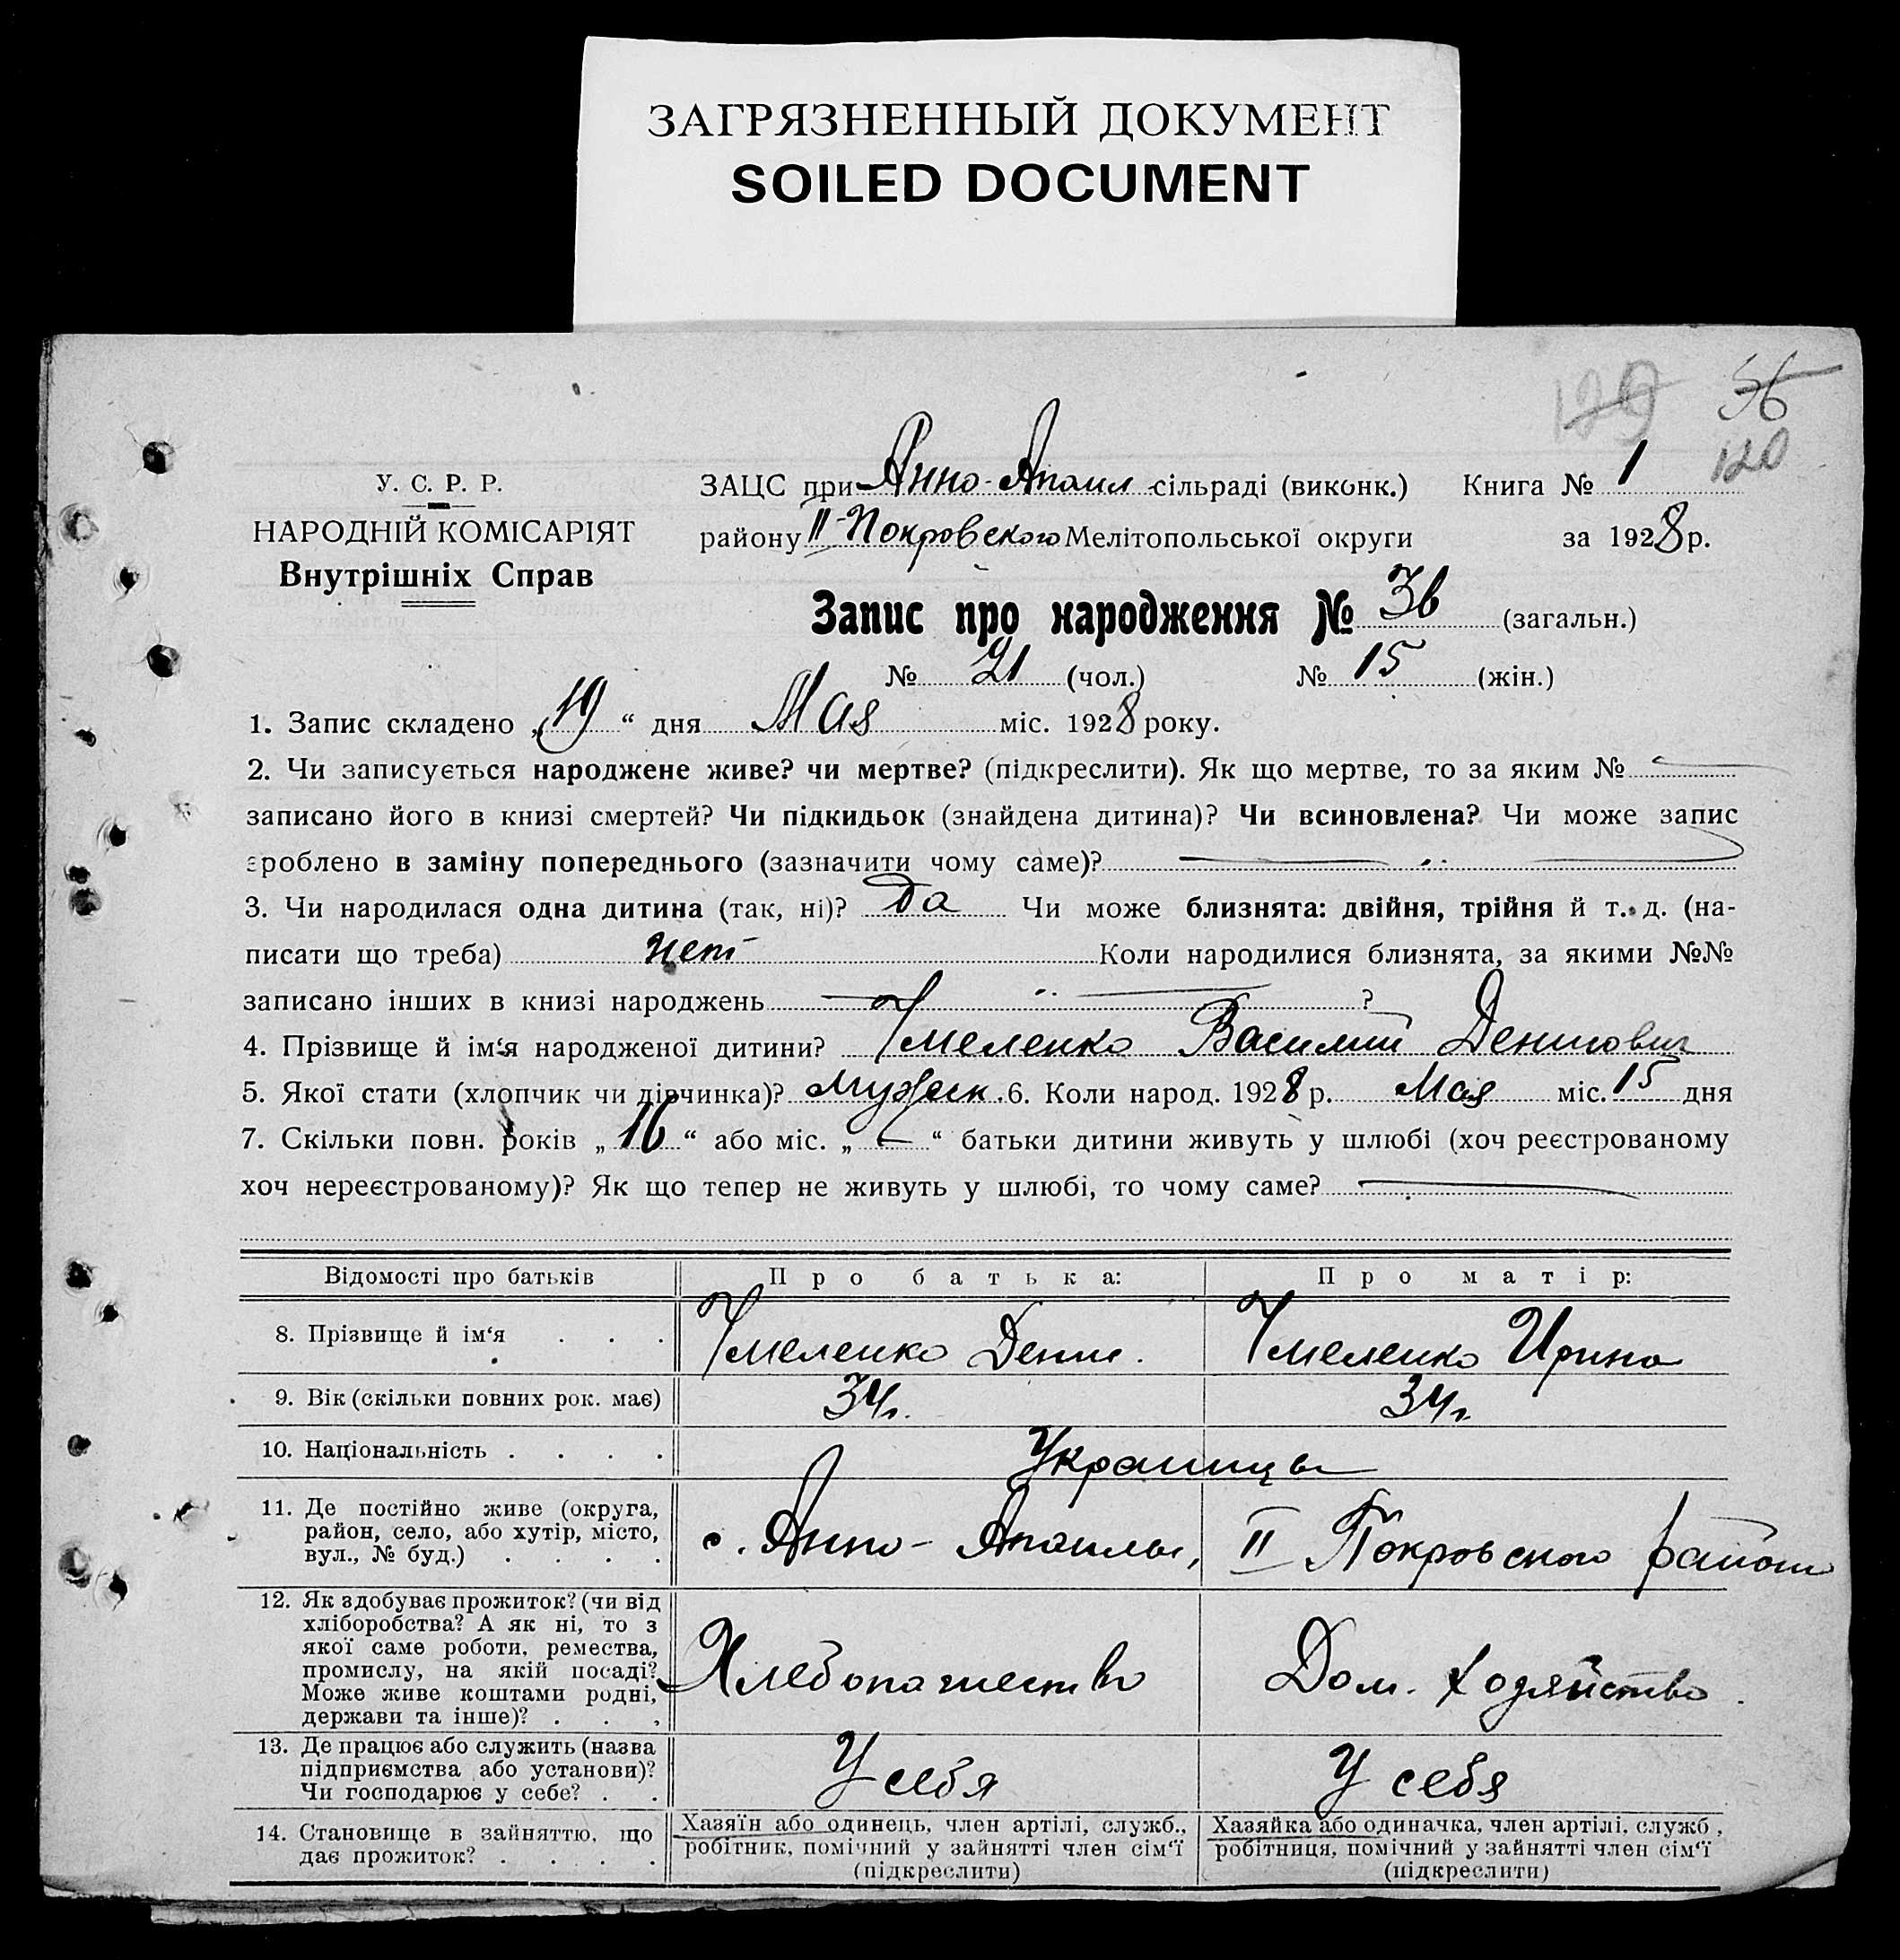 ЗАГРЯЗНЕННЫЙ ДОКУМЕНТ
SOILED DOCUMENT
129 36
120
У. С. Р. Р.
НАРОДНІЙ КОМІСАРІЯТ
Внутрішніх Справ
ЗАЦС при Анно-Апаил сільраді (виконк.) Книга № 1
району II-Покровского Мелітопольської округи за 1928 р.
Запис про народження № 36 (загальн.)
№ 21 (чол.) № 15 (жін.)
1. Запис складено „19“ дня Мая міс. 1928 року.
2. Чи записується народжене живе? чи мертве? (підкреслити). Як що мертве, то за яким №
записано його в книзі смертей? Чи підкидьок (знайдена дитина)? Чи всиновлена? Чи може запис
зроблено в заміну попереднього (зазначити чому саме)?
3. Чи народилася одна дитина (так, ні)? Да Чи може близнята: двійня, трійня й т. д. (на-
писати що треба) нет Коли народилися близнята, за якими №№
записано інших в книзі народжень ?
4. Прізвище й ім‘я народженої дитини? Чмеленко Василий Денисович
5. Якої стати (хлопчик чи дівчинка)? Мужск. 6. Коли народ. 1928 р. Мая міс. 15 дня
7. Скільки повн. років „16“ або міс. „—“ батьки дитини живуть у шлюбі (хоч реєстрованому
хоч нереєстрованому)? Як що тепер не живуть у шлюбі, то чому саме?
Відомості про батьків Про батька: Про матір:
8. Прізвище й ім‘я . . . Чмеленко Денис. Чмеленко Ирина
9. Вік (скільки повних рок. має) 34 г. 34 г.
10. Національність . . . . Украинцы
11. Де постійно живе (округа,
район, село, або хутір, місто,
вул., № буд.) . . . .
с. Анно-Апаилы, II Покровского района
12. Як здобуває прожиток? (чи від
хліборобства? А як ні, то з
якої саме роботи, ремества,
промислу, на якій посаді?
Може живе коштами родні,
держави та інше)? . . .
Хлебопашество Дом. хозяйство
13. Де працює або служить (назва
підприємства або установи)?
Чи господарює у себе? . .
У себя У себя
14. Становище в зайняттю, що
дає прожиток? . . . .
Хазяїн або одинець, член артілі, служб.,
робітник, помічний у зайнятті член сім‘ї
(підкреслити)
Хазяйка або одиначка, член артілі, служб.,
робітниця, помічний у зайнятті член сім‘ї
(підкреслити)